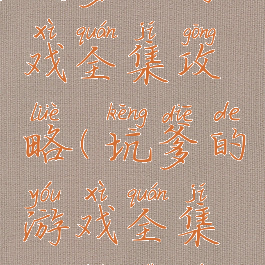 xì quán jí gōng
戏全集攻
lüè kēng diē de
略(坑爹的
yóu xì quán jí
游戏全集